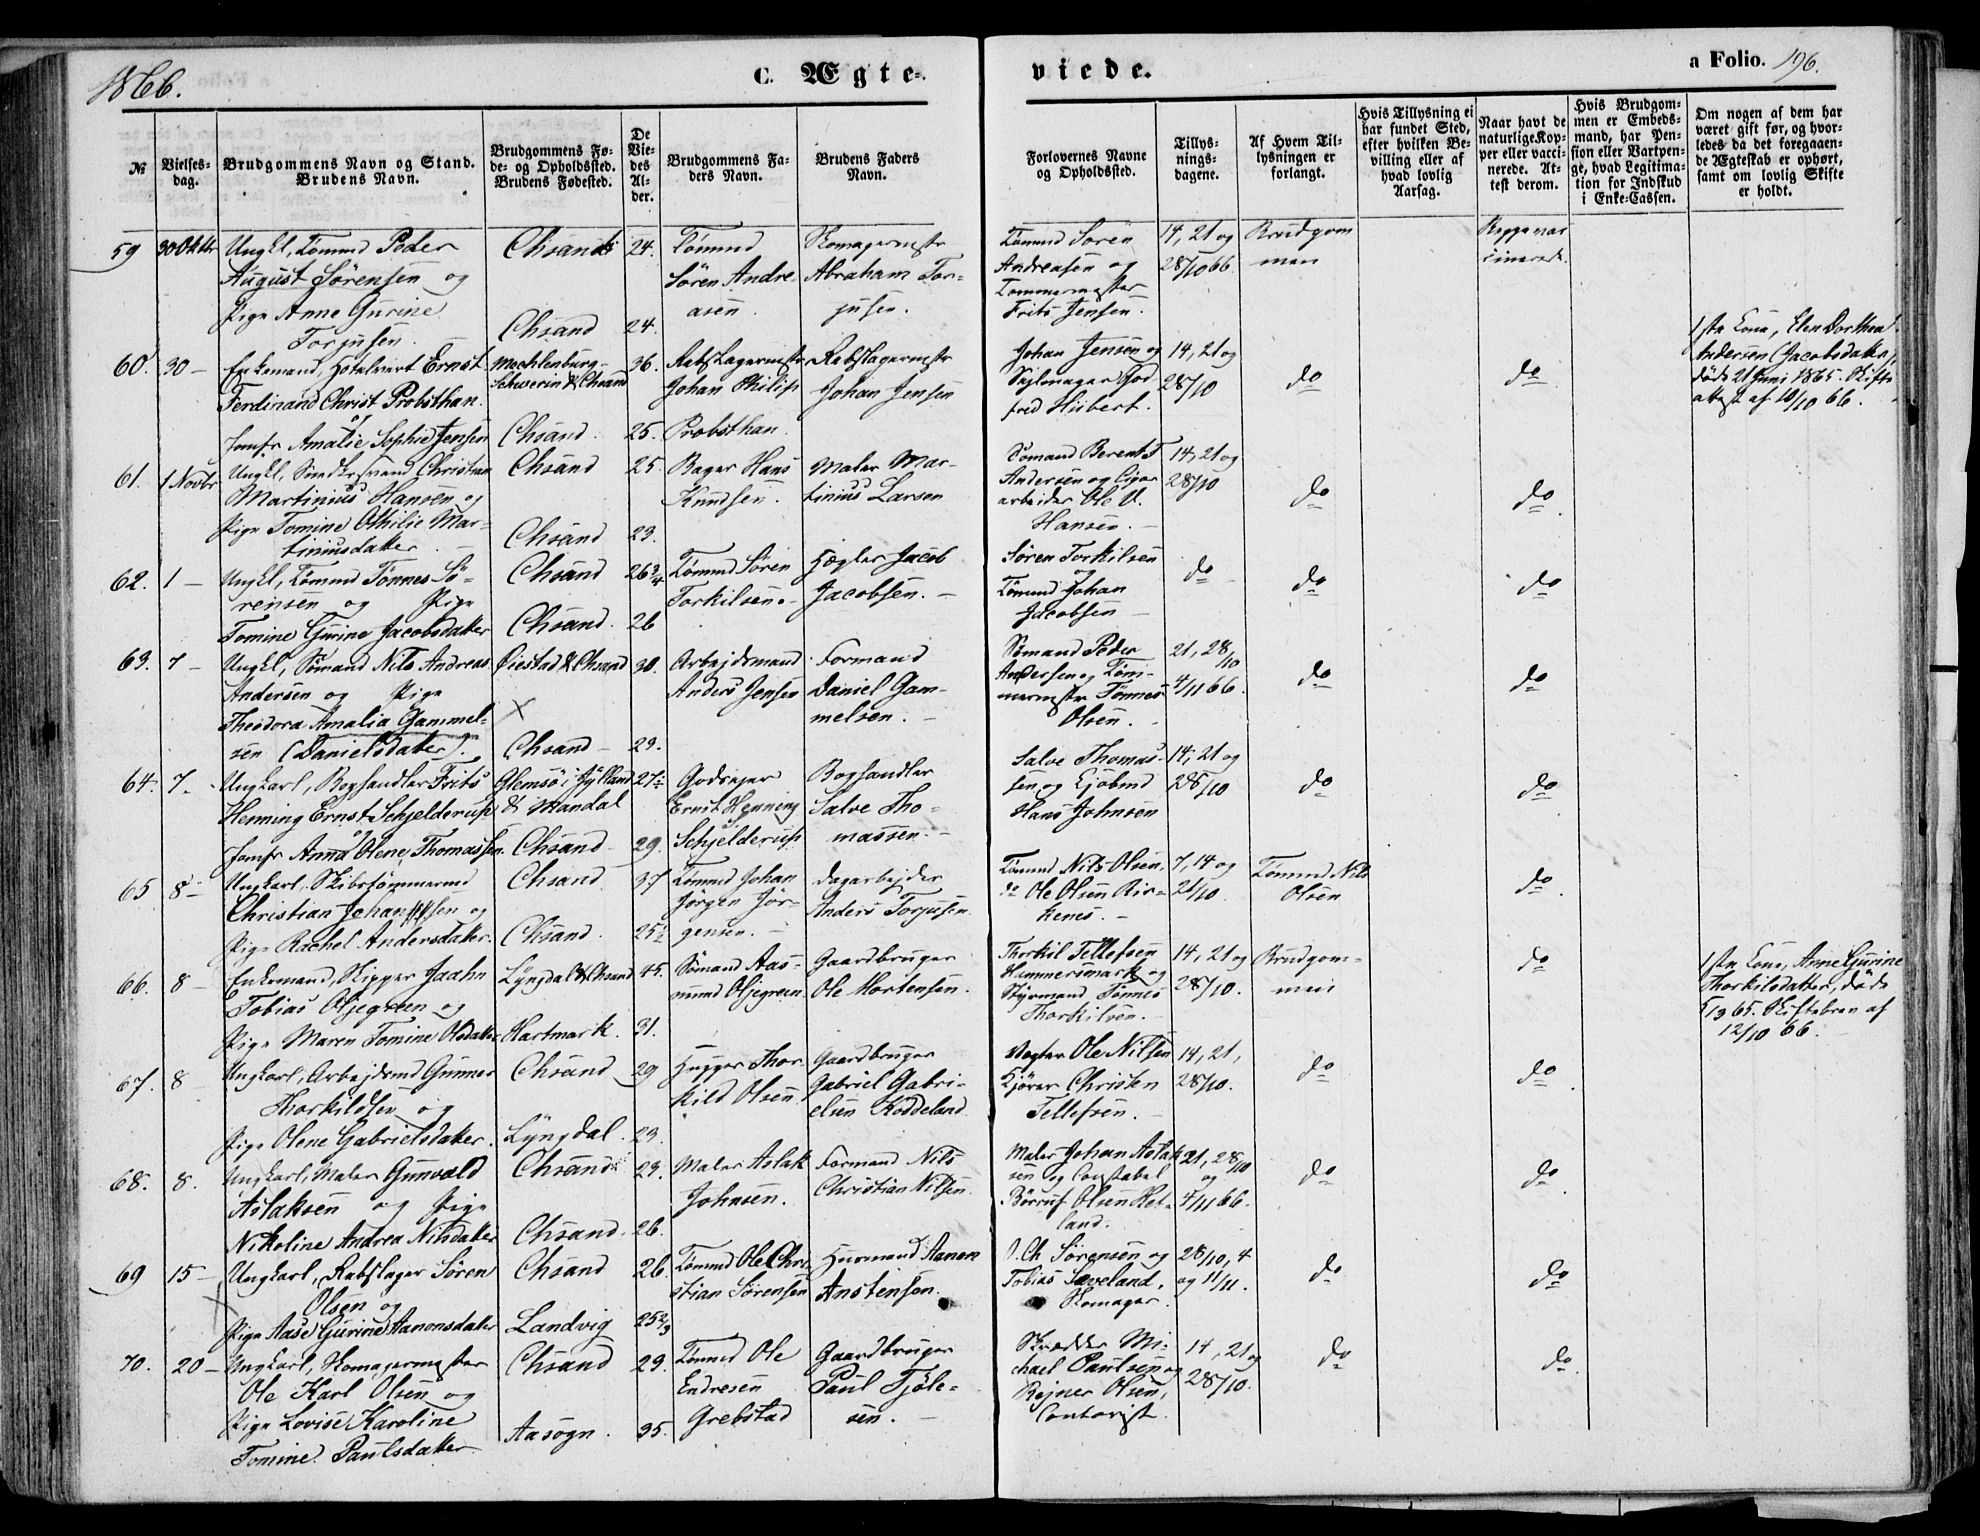 1866.
C. Ægte-
viede.
a Folio. 196.
№
Vielses-
dag.
Brudgommens Navn og Stand.
Brudens Navn.
Brudgommens Fø-
de- og Opholdssted.
Brudens Fødested.
De
Vie-
des
Al-
der.
Brudgommens Fa-
ders Navn.
Brudens Faders
Navn.
Forlovernes Navne
og Opholdssted.
Tillys-
nings-
dagene.
Af Hvem Til-
lysningen er
forlangt.
Hvis Tillysning ei
har fundet Sted,
efter hvilken Be-
villing eller af
hvad lovlig
Aarsag.
Naar havt de
naturlige Kop-
per eller vacci-
nerede. At-
test derom.
Hvis Brudgom-
men er Embeds-
mand, har Pen-
sion eller Vartpen-
ge, hvad Legitima-
tion for Indskud
i Enke-Cassen.
Om nogen af dem har
været gift før, og hvor-
ledes da det foregaaen-
de Ægteskab er ophørt,
samt om lovlig Skifte
er holdt.
59 30 Oktbr Ungkl, Tømmd Peder
August Sørensen og
Pige Anne Gurine
Torjusen.
Chsand 24.
Chsand 24.
Tømmd
Søren Andre-
asen
Skomagermstr
Abraham Tor-
jusen.
Tømmd Søren
Andreasen og
Tømmermester
Frits Jensen.
14, 21 og
28/10 66.
Brudgom
men
Begge vac
cinerede.
60. 30 - Enkemand, Hotelvert Ernst
Ferdinand Christ Probsthan.
Jomfr Amalie Sophie Jensen
Mechlenburg-
Schwerin & Chsand 36.
Chsand. 25.
Rebslagermstr
Johan Philip
Probsthan.
Rebslagermstr
Johan Jensen
Johan Jensen og
Sejlmager God
fred Hübert.
14, 21 og
28/10
do
do
1ste Kone, Elen Dorthea
Andersen (Jacobsdatter)
døde 21 Juni 1865. Skifte
attest af 10/10 66.
61. 1 Novbr Ungkl, Snedkersvend Christian
Martinius Hansen og
Pige Tomine Othilie Mar-
tiniusdatter
Chsand 25.
Chsand 23.
Bager Hans
Knudsen.
Maler Mar-
tinius Larsen
Sømand Berent T
Andersen og Cigar
arbeider Ole V.
Hansen.
14, 21 og
28/10
do
do
62. 1 - Ungkl, Tømmd Tønnes Sø-
rensen og Pige
Tomine Gurine Jacobsdatter
Chsand 26 3/4
Chsand. 26
Tømmd Søren
Torkilsen.
Hægter Jacob
Jacobsen.
Søren Torkilsen
og
Tømmd Johan
Jacobsen
do
do
do
63. 7 - Ungkl, Sømand Nils Andreas
Andersen og Pige
Theodora Amalia Gammel-
sen (Danielsdatter).
Øiestad & Chsand 30.
Chsand - 29.
Arbejdsmand
Anders Jensen
Formand
Daniel Gam-
melsen.
Sømand Peder
Andersen og Tøm-
mermstr Tønnes
Olsen.
21, 28/10
4/11 66.
do
do
64. 7. Ungkarl, Boghandler Frits
Henning Ernst Schjelderup
Jomfr Anna Olene Thomassen.
Glemsø i Jylland
& Mandal 27 1/2
Chsand 29.
Godsejer
Ernst Henning
Schjelderup
Boghandler
Salve Tho-
massen.
Salve Thomas-
sen og Kjøbmd
Hans Johnsen
14, 21 og
28/10
do
do
65 8 - Ungkarl, Skibstømmermd
Christian Johansen og
Pige Rachel Andersdatter.
Chsand 37
Chsand. 25 1/2
Tømmd Johan
Jørgen Jør-
gensen.
Dagarbejder
Anders Torjusen
Tømmd Nils Olsen,
do Ole Olsen Bir-
kenes.
7, 14 og
21/10.
Tømmd Nils
Olsen
do
66. 8 - Enkemand, Skipper Jaahn
Tobias Oljegreen og
Pige Maren Tomine Olsdatter
Lyngdal & Chsand 45.
Hartmark. 31.
Sømand Aas-
mund Oljegreen
Gaardbruger
Ole Mortensen.
Thorkil Tellefsen
Hummersmark og
Styrmand Tønnes
Thorkilsen.
14, 21 og
28/10.
Brudgom-
men
do
1ste Kone, Anne Gurine
Thorkilsdatter, døde
5/9 65. Skiftebrev af
12/10 66.
67. 8 Ungkarl, Arbejdsmd Gunner
Thorkildsen og
Pige Olene Gabrielsdatter.
Chsand 29
Lyngdal. 23.
Hugger Thor-
kild Olsen
Gaardbruger
Gabriel Gabri-
elsen Koddeland
Vægter Ole Nilsen
Kjører Christen
Tellefsen.
14, 21,
28/10.
do
do
68. 8. Ungkarl, Maler Gunvald
Aslaksen og Pige
Nikoline Andrea Nilsdatter
Chsand. 23.
Chsand. 26.
Maler Aslak
Johnsen.
Formand Nils
Christian Nilsen
Maler Johan Aslak
sen og Constabel
Børruf Olsen Het-
land.
21, 28/10
og
4/11 66.
do
do
69 15 - Ungkarl, Rebslager Søren
Olsen og
Pige Aase Gurine Aanonsdatter
Chsand 26.
Landvig 25 2/3
Tømmd Ole Chri-
stian Sørensen
Huusmand Aanon
Anstensen.
O. Ch Sørensen og
Tobias Sæveland,
Skomager.
28/10, 4
og 11/11.
do
do
70. 20 - Ungkarl, Skomagermester
Ole Karl Olsen og
Pige Lovise Karoline
Tomine Paulsdatter
Chsand 29.
Aasogn. 35.
Tømmd Ole
Endresen
Grebstad
Gaardbruger
Paul Tjøle-
sen.
Skrædder Mi-
chael Paulsen og
Rejner Olsen,
Contorist.
14, 21 og
28/10.
do
do